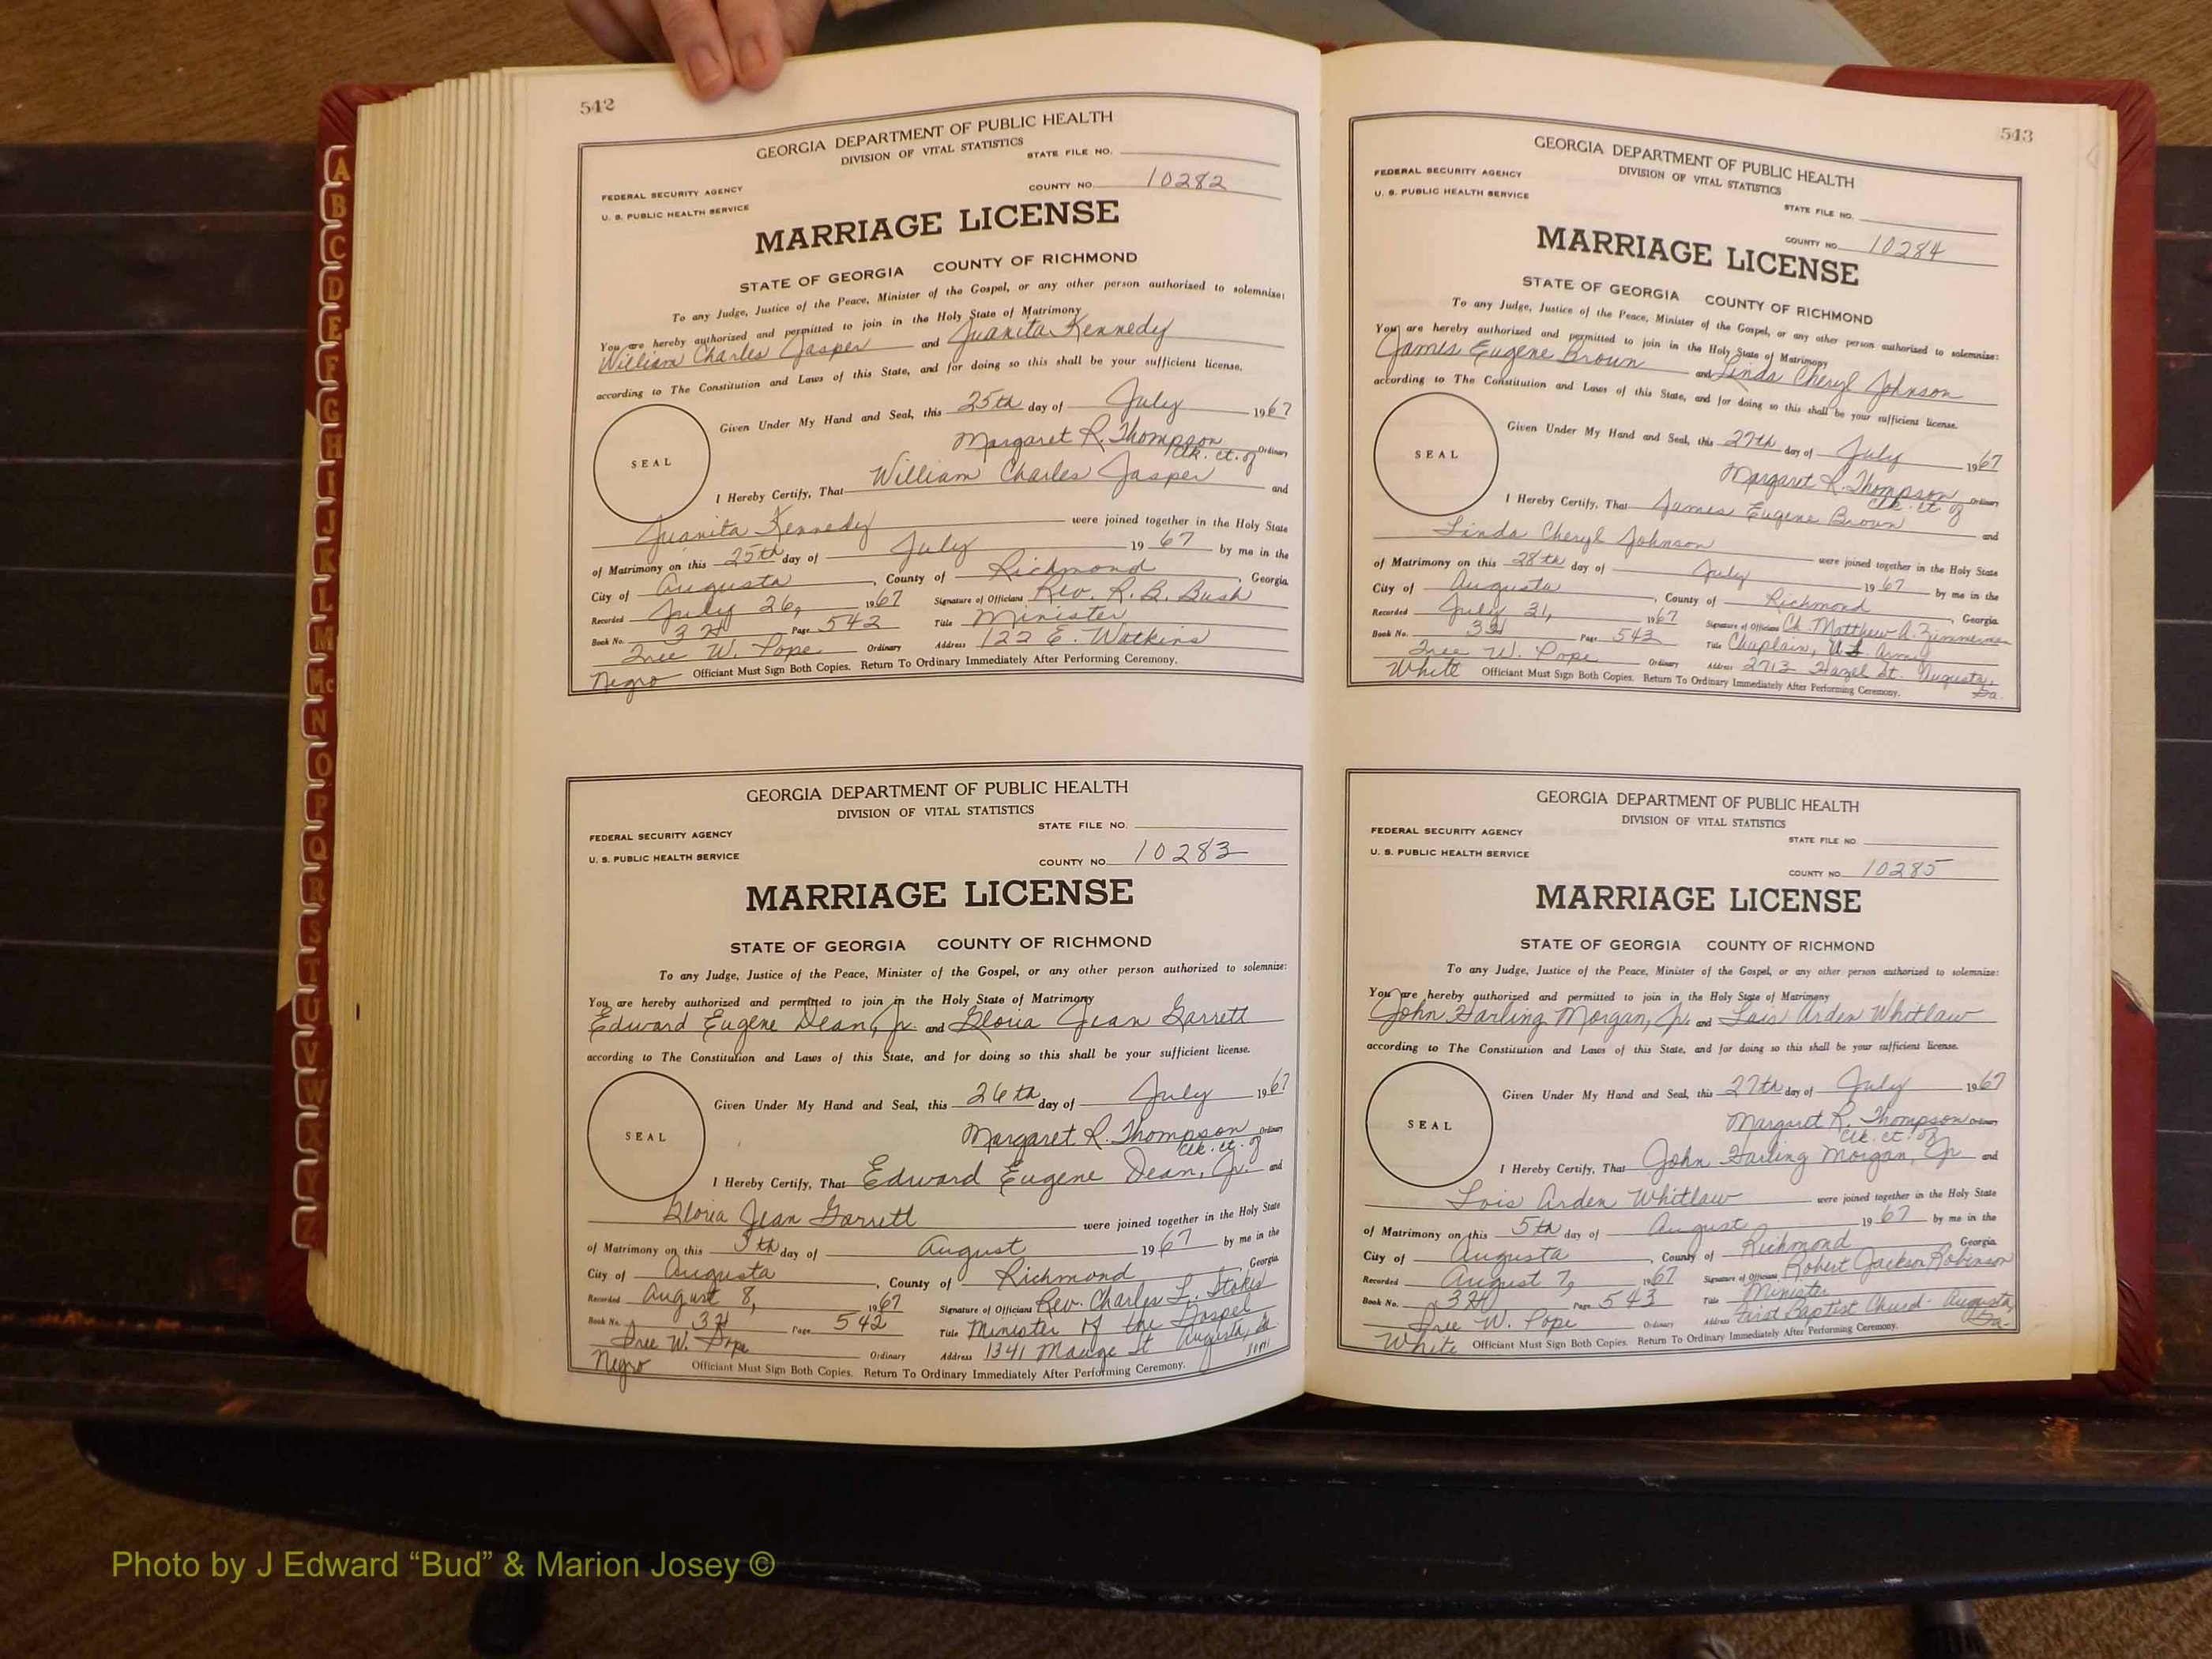 542
GEORGIA DEPARTMENT OF PUBLIC HEALTH
DIVISION OF VITAL STATISTICS
STATE FILE NO.
FEDERAL SECURITY AGENCY
COUNTY NO. 10282
U. S. PUBLIC HEALTH SERVICE
MARRIAGE LICENSE
STATE OF GEORGIA COUNTY OF RICHMOND
To any Judge, Justice of the Peace, Minister of the Gospel, or any other person authorized to solemnize:
You are hereby authorized and permitted to join in the Holy State of Matrimony
William Charles Jasper and Juanita Kennedy
according to The Constitution and Laws of this State, and for doing so this shall be your sufficient license.
Given Under My Hand and Seal, this 25th day of July 1967
SEAL
Margaret R. Thompson Ordinary
Clk. Ct. of
I Hereby Certify, That William Charles Jasper and
Juanita Kennedy were joined together in the Holy State
of Matrimony on this 25th day of July 1967 by me in the
City of Augusta, County of Richmond, Georgia.
Recorded July 26, 1967 Signature of Officiant Rev. R. B. Bush
Book No. 3 Page 542 Title Minister
W. Pope Ordinary Address 122 E. Watkins
Negro Officiant Must Sign Both Copies. Return To Ordinary Immediately After Performing Ceremony.
GEORGIA DEPARTMENT OF PUBLIC HEALTH
DIVISION OF VITAL STATISTICS
STATE FILE NO.
FEDERAL SECURITY AGENCY
U. S. PUBLIC HEALTH SERVICE
COUNTY NO. 10283
MARRIAGE LICENSE
STATE OF GEORGIA COUNTY OF RICHMOND
To any Judge, Justice of the Peace, Minister of the Gospel, or any other person authorized to solemnize:
You are hereby authorized and permitted to join in the Holy State of Matrimony
Edward Eugene Dean, Jr. and Gloria Jean Garrett
according to The Constitution and Laws of this State, and for doing so this shall be your sufficient license.
Given Under My Hand and Seal, this 26th day of July 1967
SEAL
Margaret R. Thompson Ordinary
Clk. Ct. of
I Hereby Certify, That Edward Eugene Dean, Jr. and
Gloria Jean Garrett were joined together in the Holy State
of Matrimony on this 5th day of August 1967 by me in the
City of Augusta, County of Richmond Georgia.
Recorded August 8, 1967 Signature of Officiant Rev. Charles L. Stokes
Book No. 3 Page 542 Title Minister of the Gospel
W. Pope Ordinary Address 1341 St Augusta, Ga
Negro Officiant Must Sign Both Copies. Return To Ordinary Immediately After Performing Ceremony.
543
GEORGIA DEPARTMENT OF PUBLIC HEALTH
DIVISION OF VITAL STATISTICS
FEDERAL SECURITY AGENCY
U. S. PUBLIC HEALTH SERVICE
STATE FILE NO.
COUNTY NO. 10284
MARRIAGE LICENSE
STATE OF GEORGIA COUNTY OF RICHMOND
To any Judge, Justice of the Peace, Minister of the Gospel, or any other person authorized to solemnize:
You are hereby authorized and permitted to join in the Holy State of Matrimony
James Eugene Brown and Linda Cheryl Johnson
according to The Constitution and Laws of this State, and for doing so this shall be your sufficient license.
Given Under My Hand and Seal, this 27th day of July 1967
SEAL
Margaret R. Thompson Ordinary
Clk. Ct. of
I Hereby Certify, That James Eugene Brown and
Linda Cheryl Johnson were joined together in the Holy State
of Matrimony on this 28th day of July 1967 by me in the
City of Augusta, County of Richmond, Georgia.
Recorded July 31, 1967 Signature of Officiant Ch. Matthew A. Zimmerman
Book No. Page 543 Title Chaplain, U.S. Army
W. Pope Ordinary Address 2713 Hazel St. Augusta, Ga.
White Officiant Must Sign Both Copies. Return To Ordinary Immediately After Performing Ceremony.
GEORGIA DEPARTMENT OF PUBLIC HEALTH
DIVISION OF VITAL STATISTICS
FEDERAL SECURITY AGENCY
STATE FILE NO
U. S. PUBLIC HEALTH SERVICE
COUNTY NO. 10285
MARRIAGE LICENSE
STATE OF GEORGIA COUNTY OF RICHMOND
To any Judge, Justice of the Peace, Minister of the Gospel, or any other person authorized to solemnize:
You are hereby authorized and permitted to join in the Holy State of Matrimony
John Harling Morgan, Jr. and Lois Arden Whitlaw
according to The Constitution and Laws of this State, and for doing so this shall be your sufficient license.
Given Under My Hand and Seal, this 27th day of July 1967
SEAL
Margaret R. Thompson Ordinary
Clk. Ct. of
I Hereby Certify, That John Harling Morgan, Jr and
Lois Arden Whitlaw were joined together in the Holy State
of Matrimony on this 5th day of August 1967 by me in the
City of Augusta, County of Richmond Georgia.
Recorded August 7, 1967 Signature of Officiant Robert Jackson Robinson
Book No. 3 Page 543 Title Minister
W. Pope Ordinary Address First Baptist - Augusta, Ga.
White Officiant Must Sign Both Copies. Return To Ordinary Immediately After Performing Ceremony.
A
B
C
D
E
F
G
H
I
J
K
L
M
Mc
N
O
P
Q
R
S
T
U
V
W
X
Y
Z
Photo by J Edward “Bud” & Marion Josey ©